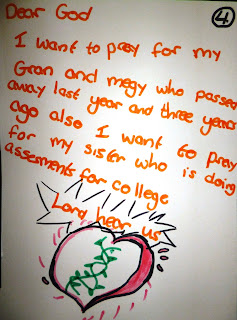 Dear God
4
I want to pray for my
Gran and megy who passed
away last year and three years
ago also I want to pray
for my sister who is doing
assesments for college
Lord hear us